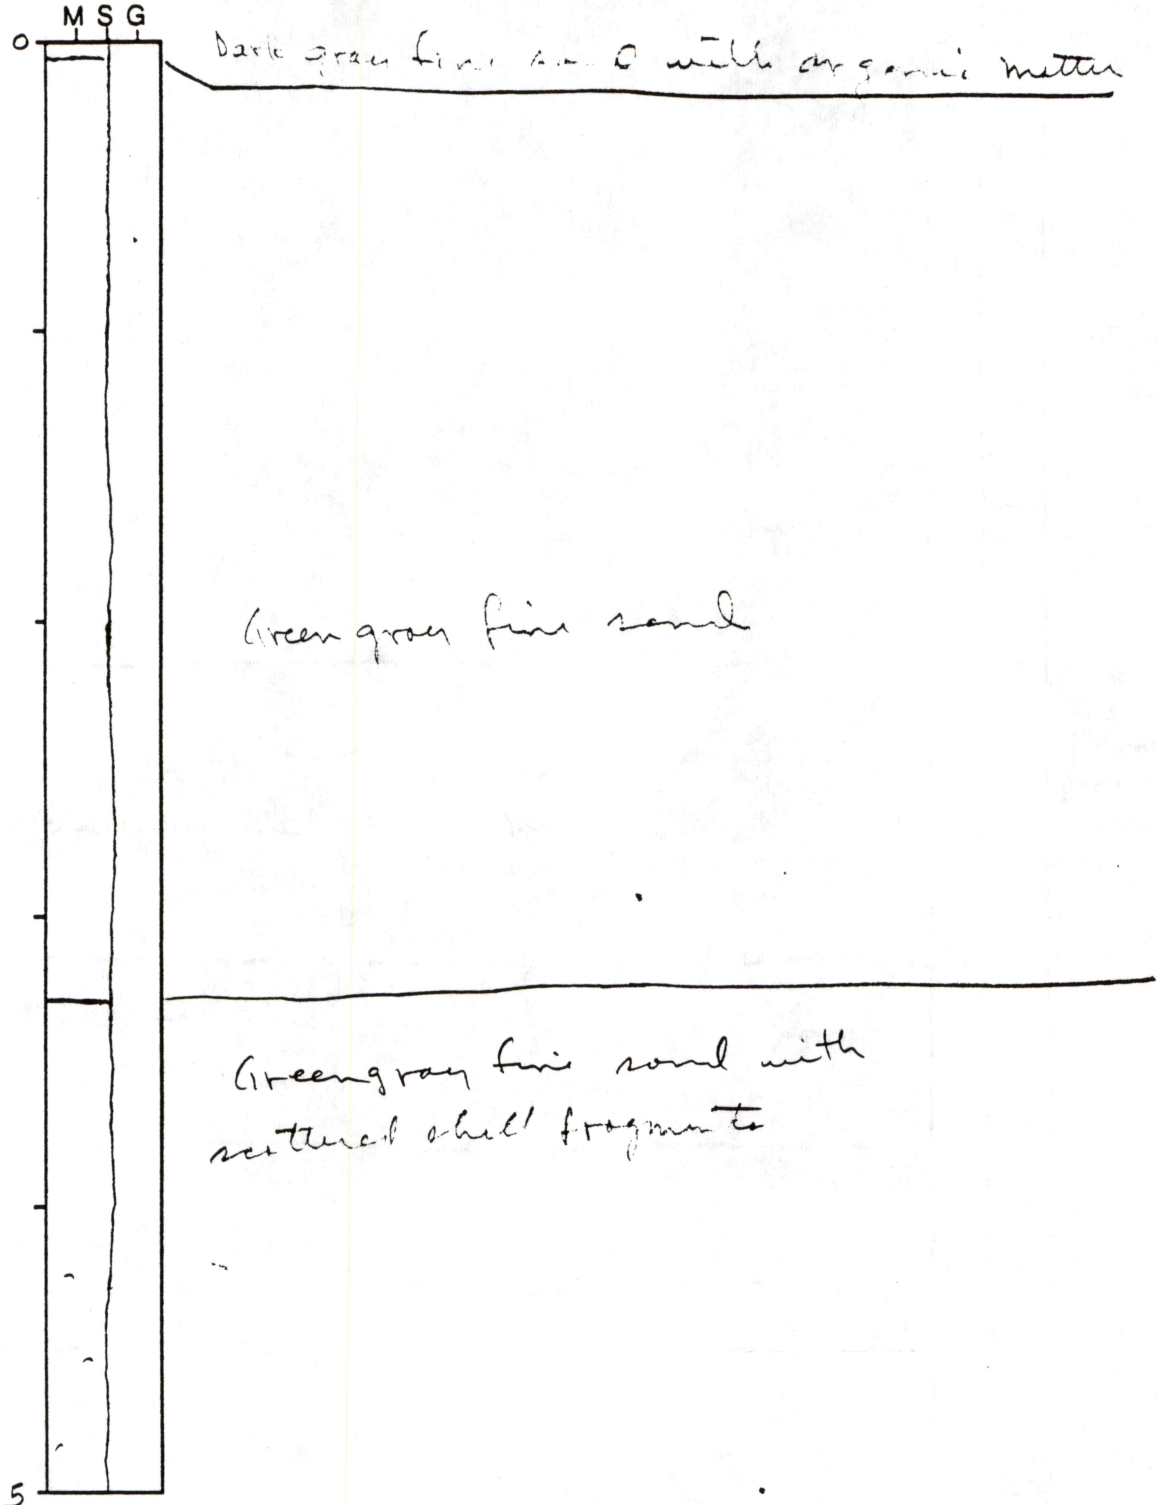 M S G
0
Dark gray fine sand with organic matter
Green gray fine sand
Green gray fine sand with
scattered shell fragments
5